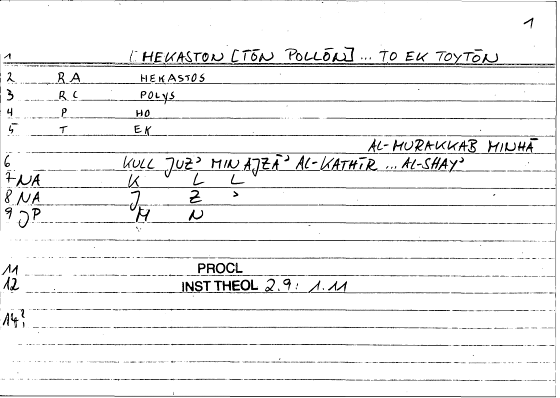 1
1 [HEKASTON [TŌN POLLŌN] ... TO EK TOYTŌN
2 RA HEKASTOS
3 RC POLYS
4 P HO
5 T EK
AL-MURAKKAB MINHĀ
6 KULL JUZʾ MIN AJZĀʾ AL-KATHĪR ... AL-SHAYʾ
7 NA K L L
8 NA J Z ʾ
9 JP M N
11 PROCL
12 INST THEOL 2.9: 1.11
14?